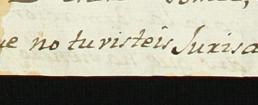 e no tuvisteis Jurisd